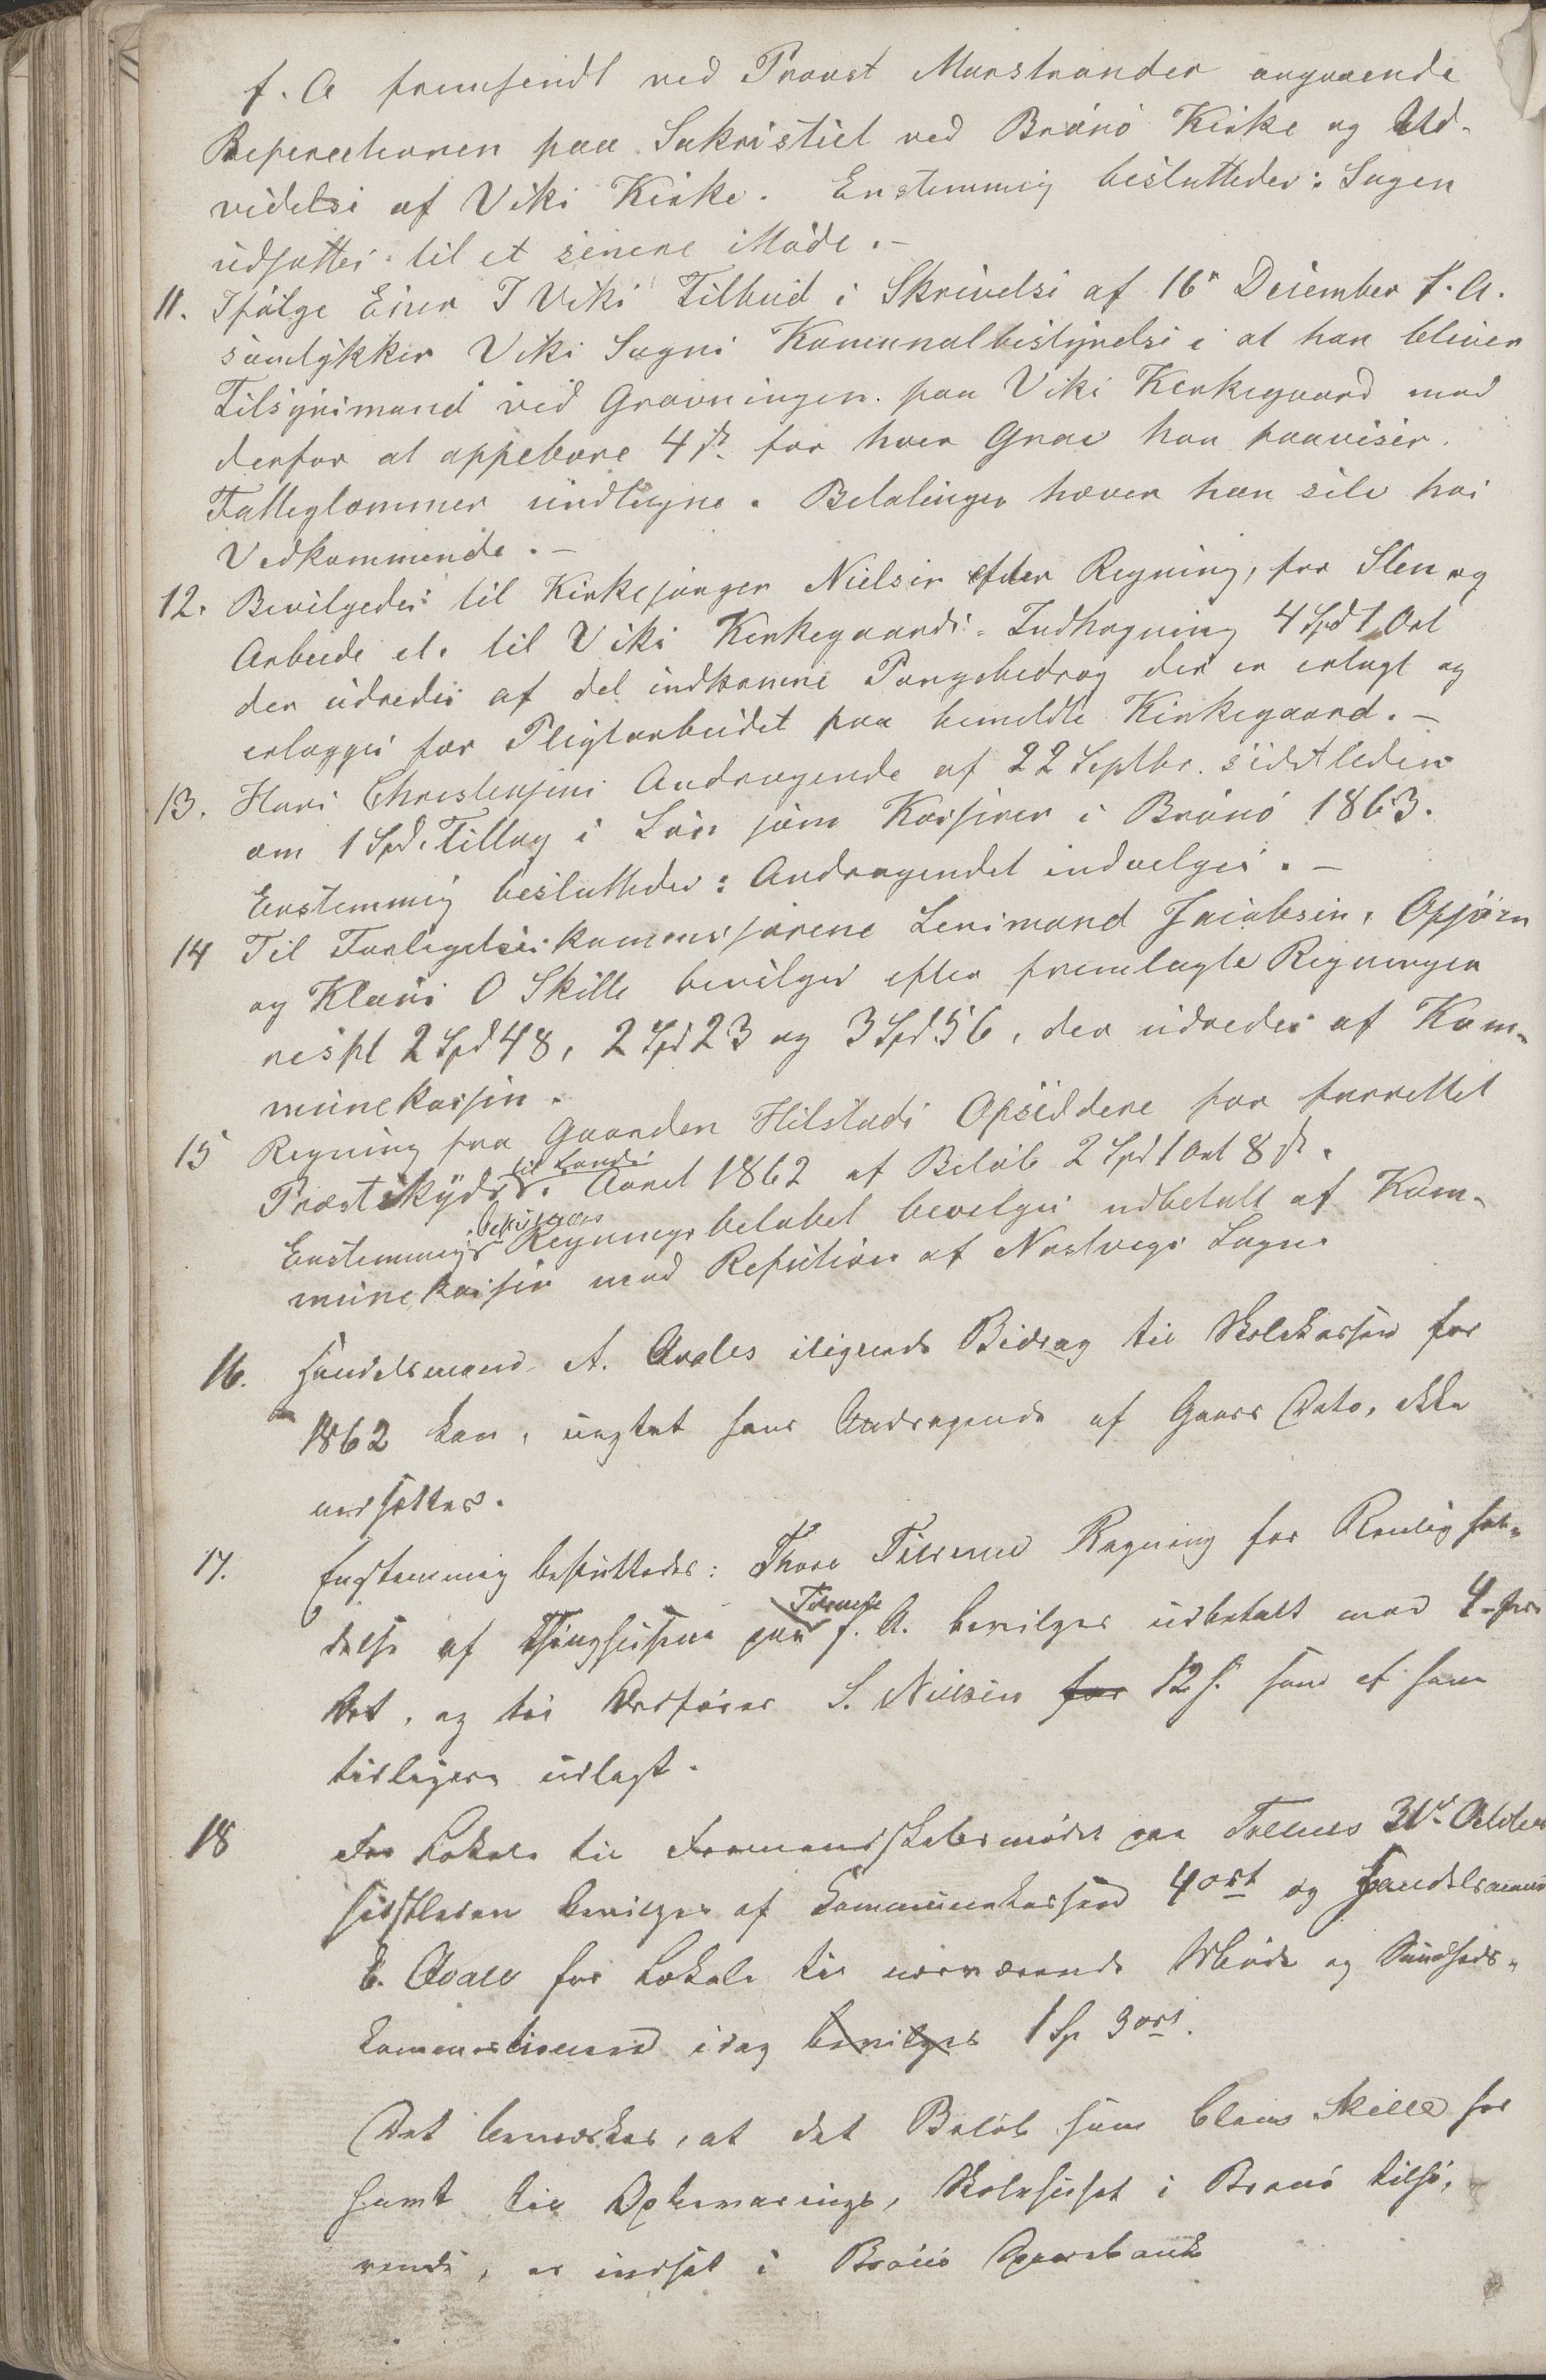 f. A fremsendt ved Provst Marstrander angaaende
Reperationen paa Sakristiet ved Brönö Kirke og Ud-
videlse af Viks Kirke. Enstemmig besluttedes: Sagen
udsættes til et senere Möde.-
11. Ifölge Einer I Viks Tilbud i Skrivelse af 16de December f. A.
samtykker Viks Sogns Komunalbestyrelse i at han bliver
Tilsynsmand ved Gravningen paa Viks Kirkegaard mod
derfor at oppebære 4 ß for hver Grav han paaviser.
Fatteglommer undtagne. Betalingen hæver han selv hos
Vedkommende.-
12. Bevilgedes til Kirkesanger Nielsen efter Regning, for Sten og
Arbeide et. til Viks Kirkegaards-Indhegning 4 Spd 1 Ort
der udredes af det indkomne Pengebidrag der er erlagt og
erlægges for Pligtarbeidet paa bemeldte Kirkegaard.-
13. Hans Christensens Andragende af 22 Septbr. sidstleden
om 1 Spd. Tillæg i Lön som Kasserer i Brönö 1863.
Enstemmig besluttedes: Andragendet indvilges.-
14 Til Forligelseskommissærene Lensmand Jacobsen, Opsjøen
og Klaus O Skille bevilges efter fremlagte Regninger
respt 2 Spd 48, 2 Spd 23 og 3 Spd 56, der udredes af Kom-
munekassen.
15 Regning fra Gaarden Hilstads Opsiddere for forrettet
Præsteskyds til Lands i Aaret 1862 af Belöb 2 Spd 1 Ort 8 ß.
Enstemmig besluttedes Regningsbelöbet bevilges udbetalt af Kom-
munekassen mod Refution af Nøstvigs Sogn
16. Handelsmand A. Qvales ilignede Bidrag til Skolekassen for
1862 kan, uagtet hans Andragende af Gaars Dato, ikke
nedsættes.
17. Enstemmig besluttedes: Thore Tilrems Regning for Renlighol-
delse af Thinghusene paa Tilrem f. A. bevilges udbetalt med 4 fire
Ort, og til Ordfører S. Nielsen for 12 ß. som af ham
tidligere udlagt.
18 For Lokale til Formandskabsmødet paa Tilrem 31te October
sidstleden bevilges af Kommunekassen 4 ort og Handelsmand
E. Qvale for Lokale til nærværende Møde og Sundheds-
kommissionens idag bevilges 1 Sp 3 ort.
Det bemærkes, at det Beløb som Claus Skille har
havt til Opbevaring, Skolehuset i Brönö tilhö-
rende, er indsat i Brönö Sparebank